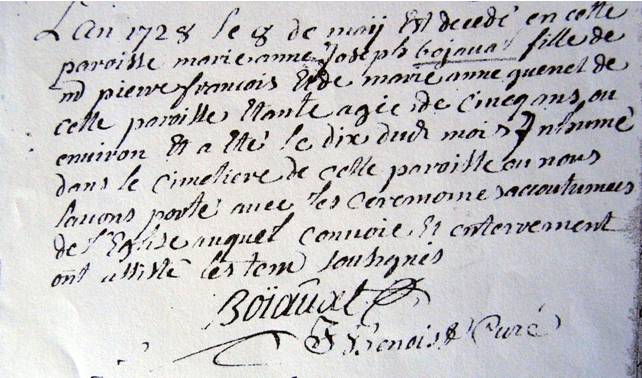 L'an 1728 le 8 de maÿ Est decedé en cette
paroisse marie anne Joseph bojaual fille de
md pierre francois Et de marie anne quenet de
cette paroisse Etante agée de cincq ans ou
environ Et a Eté le dix dudt mois Inhumé
dans le Cimetiere de cette paroisse ou nous
lauons porté auec les Ceremonies accoutumees
de l'Eglise auquel Convoie Et enterrement
ont assisté les tem soussignés
Boïauat
J Benoist Curé